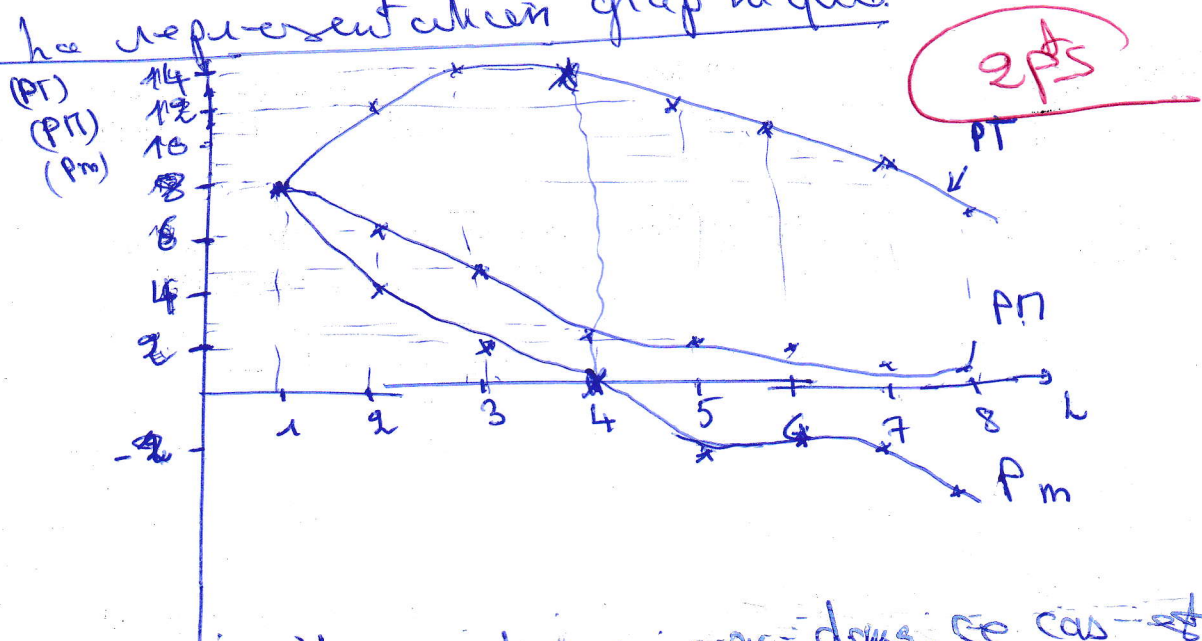 La representation graphique
2pts
(PT)
(PM)
(Pm)
14
12
10
8
6
4
2
-2
PT
PM
1 2 3 4 5 6 7 8 L
Pm
dans ce cas est